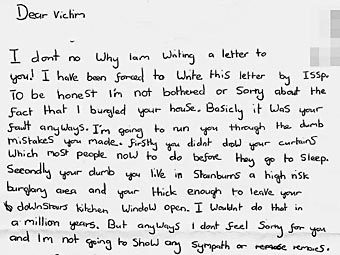 Dear Victim
I dont no Why Iam Writing a letter to
you! I have been forced to Write this letter by ISSP.
To be honest I'm not bothered or Sorry about the
fact that I burgled your house. Basicly it was your
fault anyways. I'm going to run you through the dumb
mistakes you made. Firstly you didnt drow your curtains
Which most people now to do before they go to Sleep.
Secondly your dumb you live in Stanburns a high risk
burglary area and your thick enough to leave your
downstairs kitchen Window open. I Wouldnt do that in
a million years. But anyways I dont feel Sorry for you
and I'm not going to Show any Sympath or remores.